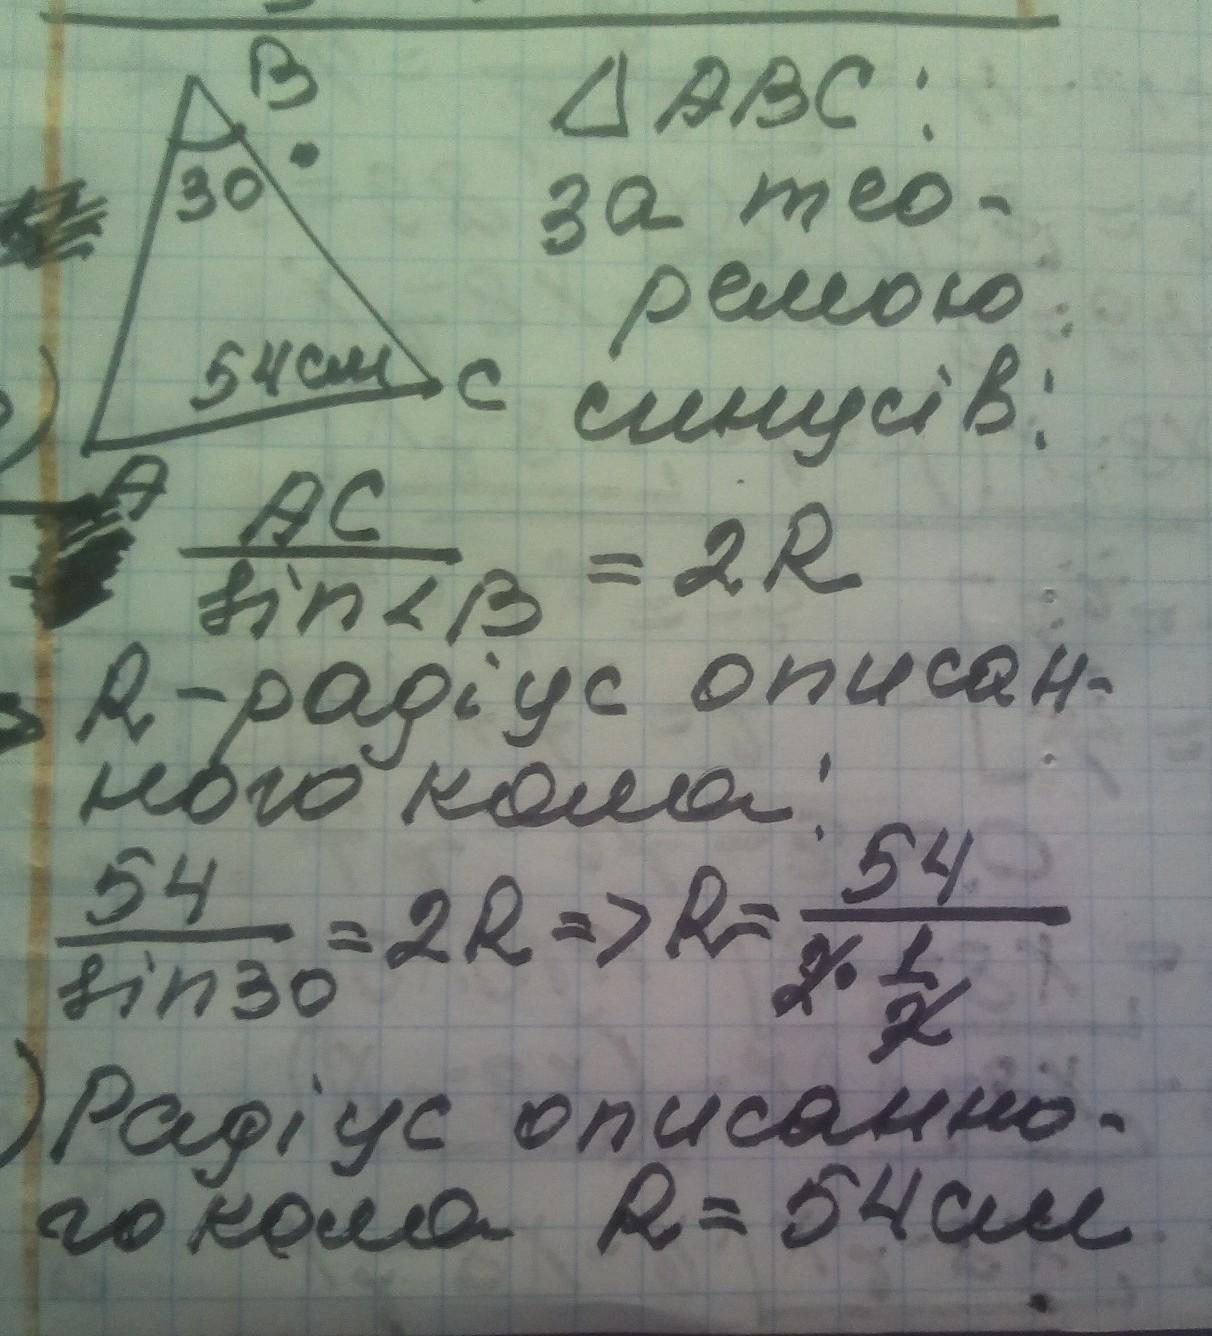 B
30
54см
C
A
△ABC:
за тео-
ремою
синусів:
AC
sin∠B
= 2R
R - радіус описан-
ного кола:
54
sin30
= 2R => R =
54
2 · 1
2
) Радіус описанно-
го кола R = 54см